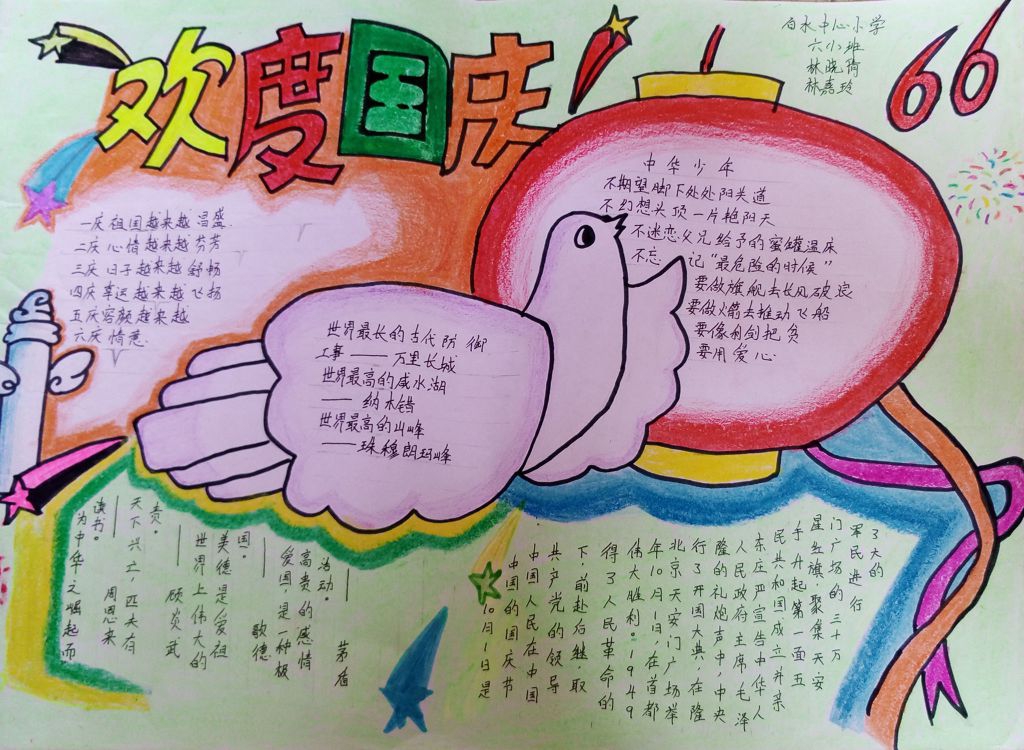 欢度国庆
白水中心小学
六(1)班
林晓倩
林嘉玲
66
一庆祖国越来越昌盛.
二庆心情越来越芬芳
三庆日子越来越舒畅
四庆幸运越来越飞扬
五庆容颜越来越
六庆情意.
中华少年
不期望脚下处处阳关道
不幻想头顶一片艳阳天
不迷恋父兄给予的蜜罐温床
不忘记“最危险的时候”
要做旗舰去长风破浪
要做火箭去推动飞船
要像利剑把贫
要用爱心
世界最长的古代防御
工事——万里长城
世界最高的咸水湖
——纳木错
世界最高的山峰
——珠穆朗玛峰
为中华之崛起而
读书。
——周恩来
天下兴亡,匹夫有
责。
——顾炎武
世界上伟大的
美德是爱祖
国。
——歌德
爱国,是一种极
高贵的感情
活动。
——茅盾
10月1日是
中国的国庆节
中国人民在中国
共产党的领导
下,前赴后继,取
得了人民革命的
伟大胜利。1949
年10月1日在首都
北京天安门广场举
行了开国大典,在隆
隆的礼炮声中,中央
人民政府主席毛泽
东庄严宣告中华人
民共和国成立并亲
手升起第一面五
星红旗,聚集天安
门广场的三十万
军民进行
了大的